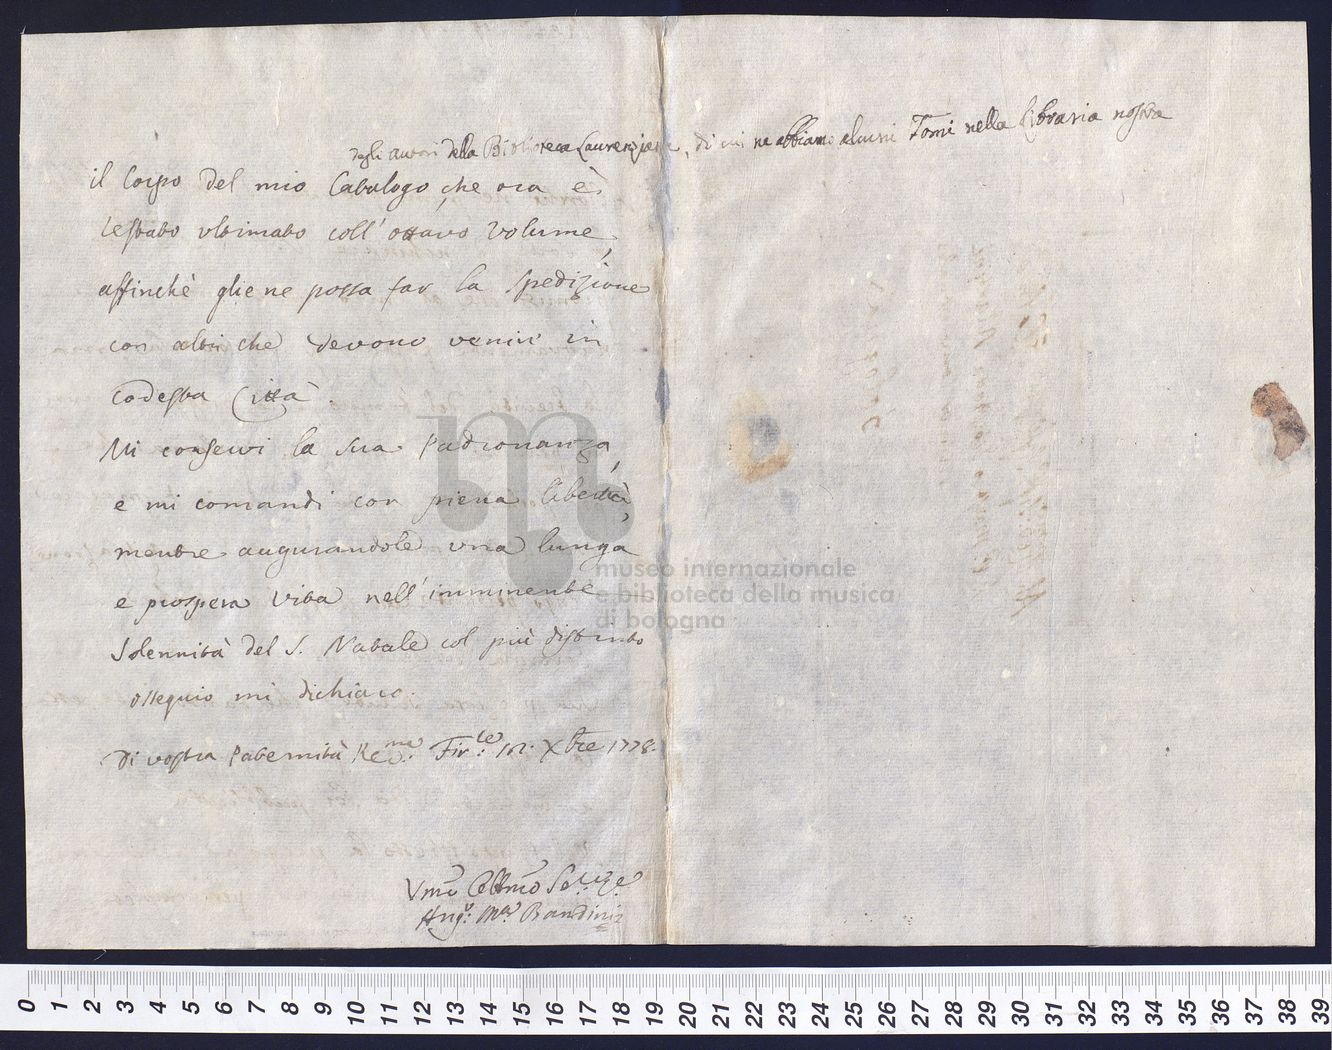 degli autori della Biblioteca Laurenziana, di cui ne abbiamo alcuni Tomi nella Libraria nostra
il Corpo del mio Catalogo, che ora è
restato ultimato coll' ottavo Volume,
affinchè gliene possa far la spedizione
con altri che devono venir in
codesta Città.
Mi conservi la sua Padronanza,
e mi comandi con piena libertà,
mentre augurandole una lunga
e prospera vita nell' imminente
Solennità del S. Natale col più distinto
ossequio mi dichiaro.
Di vostra Paternità Re.ma Fir.ze Xbre 1778.
Umo Obbmo Se.
Ang. Ma. Bandini
museo internazionale
e biblioteca della musica
di bologna
0 1 2 3 4 5 6 7 8 9 10 11 12 13 14 15 16 17 18 19 20 21 22 23 24 25 26 27 28 29 30 31 32 33 34 35 36 37 38 39